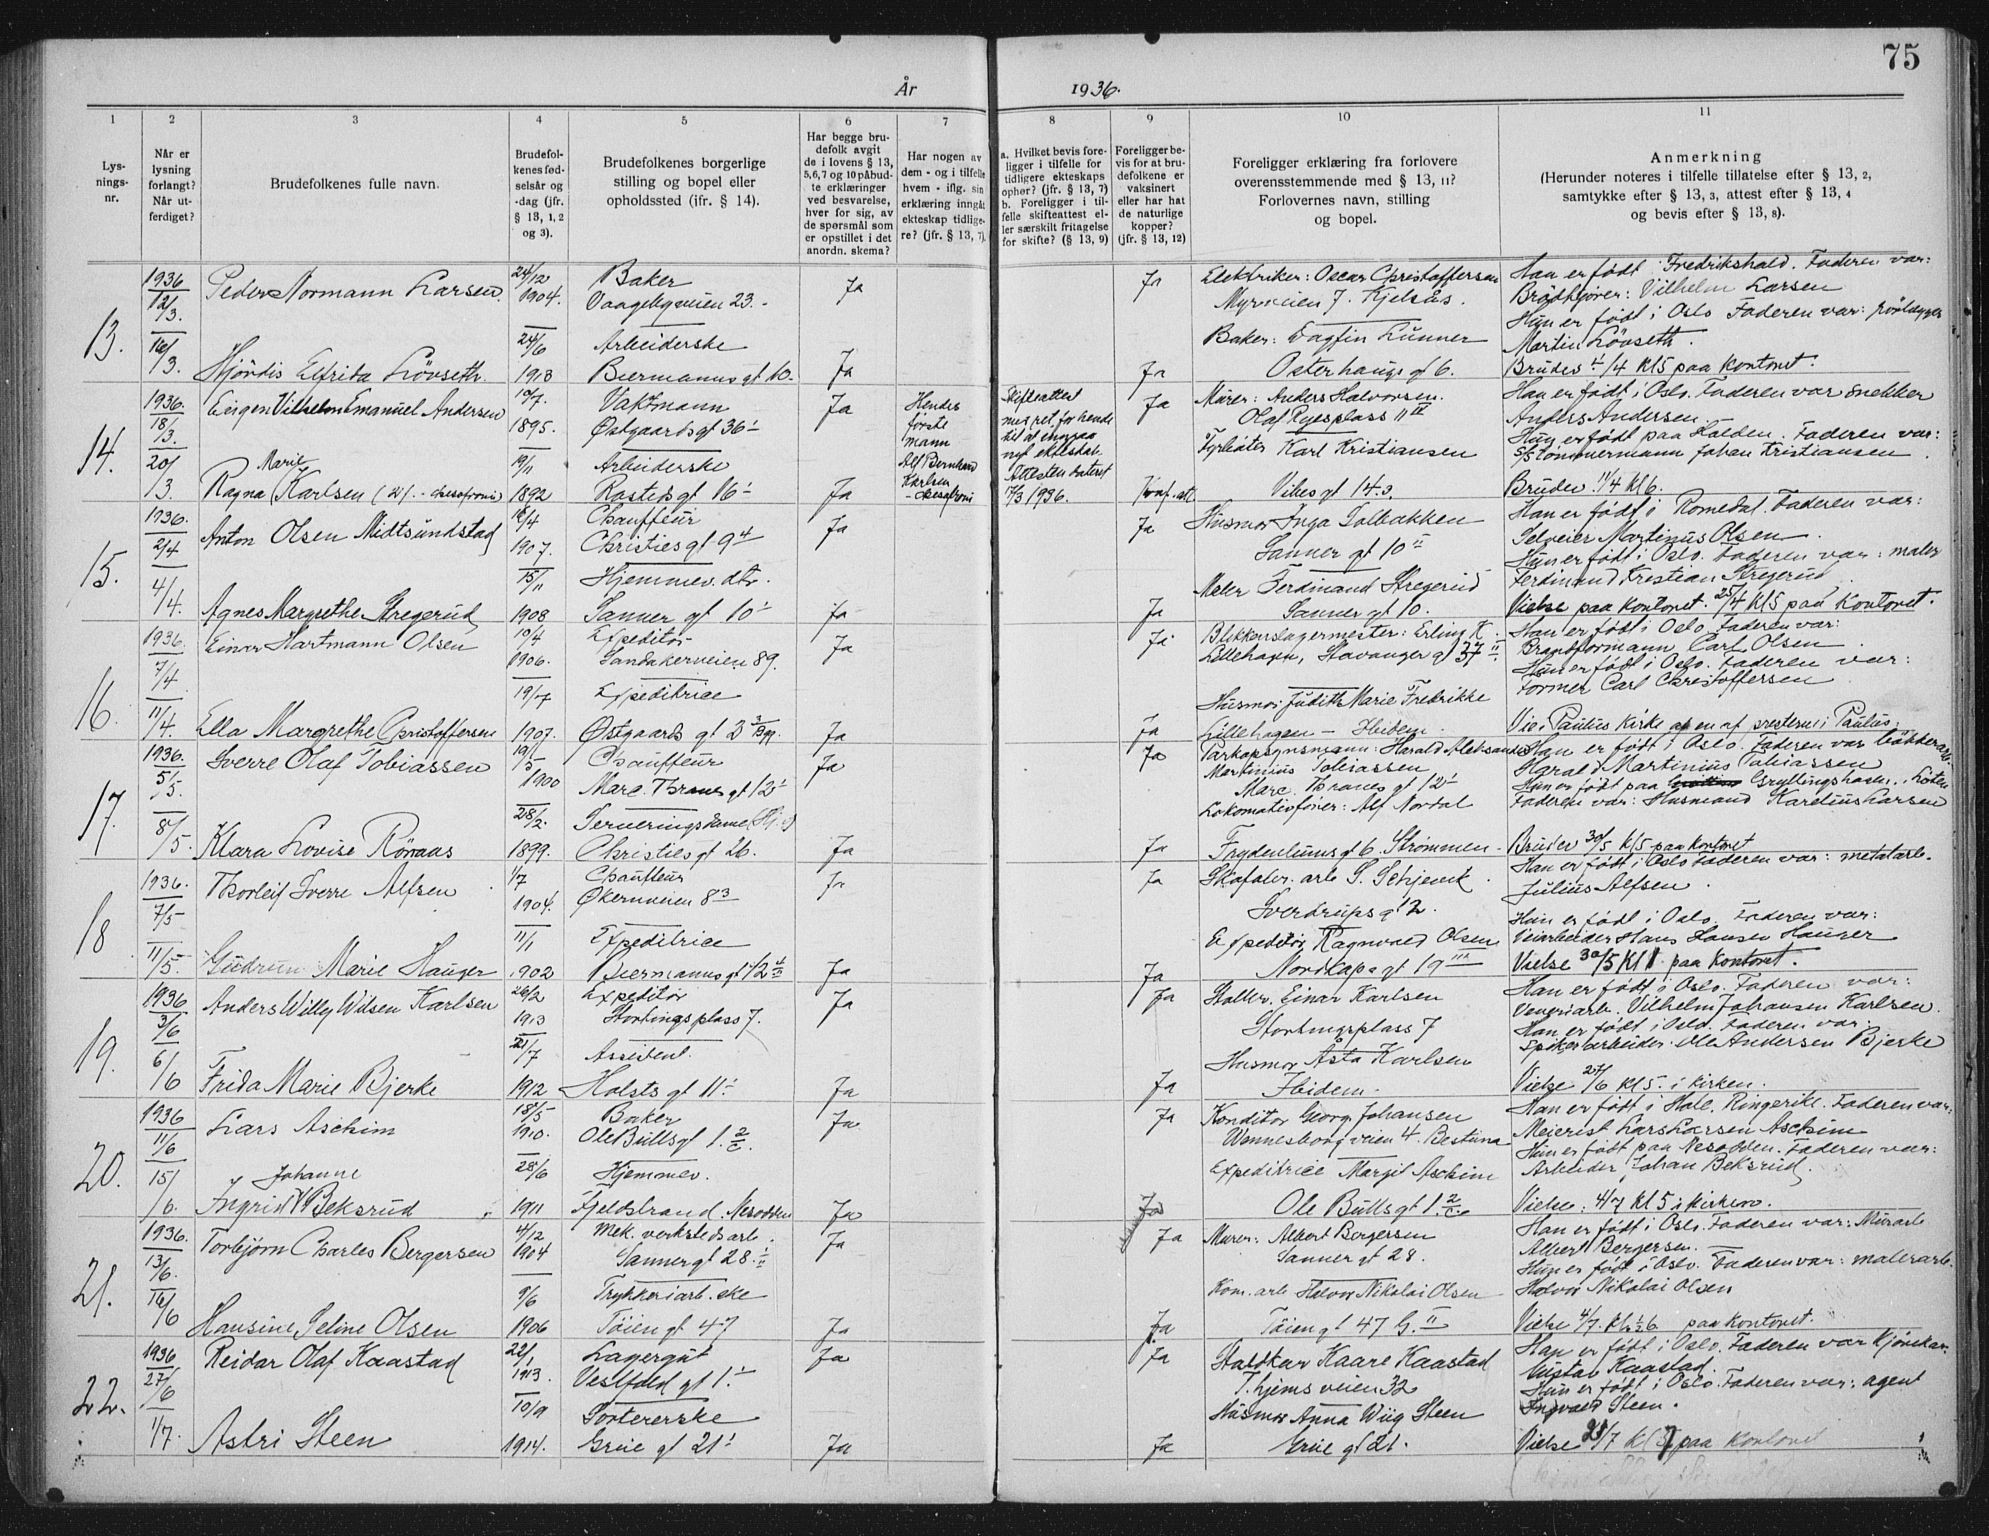 75
År 1936.
1 2 3 4 5 6 7 8 9 10 11
Lys-
nings-
nr.
Når er
lysning
forlangt?
Når ut-
ferdiget?
Brudefolkenes fulle navn.
Brudefol-
kenes fød-
selsår og
-dag (jfr.
§ 13, 1, 2
og 3).
Brudefolkenes borgerlige
stilling og bopel eller
opholdssted (jfr. § 14).
Har begge bru-
defolk avgit
de i lovens § 13,
5,6,7 og 10 påbud-
te erklæringer
ved besvarelse,
hver for sig, av
de spørsmål som
er opstillet i det
anordn. skema?
Har nogen av
dem - og i tilfelle
hvem - iflg. sin
erklæring inngåt
ekteskap tidlige-
re? (jfr. § 13, 7).
a. Hvilket bevis fore-
ligger i tilfelle for
tidligere ekteskaps
ophør? (jfr. § 13, 7)
b. Foreligger i til-
felle skifteattest el-
ler særskilt fritagelse
for skifte? (§ 13, 9)
Foreligger be-
vis for at bru-
defolkene er
vaksinert
eller har hat
de naturlige
kopper?
(jfr. § 13, 12)
Foreligger erklæring fra forlovere
overensstemmende med § 13, 11?
Forlovernes navn, stilling
og bopel.
Anmerkning
(Herunder noteres i tilfelle tillatelse efter § 13, 2,
samtykke efter § 13, 3, attest efter § 13, 4
og bevis efter § 13, 8).
13.
1936 12/3.
16/3.
Peder Normann Larsen.
24/12 1904.
Baker
Vaagebyveien 23.
Ja
Ja
Elektriker: Oscar Christoffersen
Myrveien 7. Kjelsås.
Han er født i Fredrikshald. Faderen var:
Brødkjører: Vilhelm Larsen
Hjørdis Elfrida Løvseth.
24/6 1913
Arbeiderske
Biermanns gt 10.
Ja
Ja
Baker: Dagfin Lunner
Osterhaugs gt 6.
Hun er født i Oslo Faderen var: rørlægger
Martin Løvseth.
Brudev 1/4 Kl 5 paa kontoret.
14.
1936. 18/3.
20/3.
Eugen Vilhelm Emanuel Andersen
10/7. 1895.
Vaktmann
Østgaards gt 36
Ja
Hendes
første
mann
Alf Bernhard
Karlsen
Skifteattest
til at inngaa
nyt ekteskab.
Attesten dateret
17/3 1936.
Ja
Murer: Anders Halvorsen.
Olaf Ryes plass 11 IV
Han er født i Oslo. Faderen var snekker
Anders Andersen.
Marie
Ragna Karlsen
19/11 1892
Arbeiderske
Rosteds gt 16
Ja
Konf. att
Fyrbøter Karl Kristiansen
Vibes gt 14.3.
Hun er født paa Halden. Faderen var:
Tømmermann Johan Kristiansen
Brudev. 11/4 kl 6.
15.
1936. 2/4
4/4.
Anton Olsen Midtsundstad
18/4 1907.
Chauffeur
Christies gt 9 4
Ja
Ja
Husmor Inga Tolbakken
Sanner gt 10 II
Han er født i Romedal. Faderen var:
Selveier Martinus Olsen
Agnes Margrethe Stregerud
15/11 1908
Hjemmev. dtr.
Sanner gt 10
Ja
Ja
Maler Ferdinand Stregerud
Sanner gt 10.
Hun er født i Oslo. Faderen var: maler
Ferdinand Kristian Stregerud
Vielse paa kontoret. 25/4 Kl 5 paa kontoret.
16.
1936. 7/4
11/4.
Einar Hartmann Olsen
10/4 1906.
Expeditør
Sandakerveien 89.
Ja
Ja
Blikkenslagermester: Erling K.
Lillehagen, Stavanger gt
Han er født i Oslo. Faderen var:
Brandformann Carl Olsen
Ella Margrethe Christoffersen
19/7 1907.
Expeditrice
Østgaards gt 2
Ja
Ja
Husmor Judith Marie Fredrikke
Lillehagen — Ibidem.
Hun er født i Oslo. Faderen var:
Former Carl Christoffersen
Vie i Paulus kirke af en af presterne i Paulus.
17.
1936. 5/5.
8/5.
Sverre Olaf Tobiassen
19/5 1900
Chauffeur
Marc. Thranes gt 12
Ja
Ja
Parkopsynsmann: Harald
Martinius Tobiassen
Marc. Thranes gt 12
Han er født i Oslo. Faderen var
Harald Martinius Tobiassen
Klara Lovise Rønaas
28/2. 1899.
Serveringsdame
Christies gt 26.
Ja
Ja
Lokomotivfører: Alf Nordal
Frydenlunds gt 6. Strømmen.
Hun er født paa Løten
Faderen var: Husmand Karelius Larsen
Brudev 30/5 kl 5 paa kontoret
18
1936. 7/5
11/5.
Thorleif Sverre Alfsen
1/7 1904.
Chauffeur
Økernveien 8 3
Ja
Ja
Skofabr. arb S. Schjenck.
Sverdrups gt 2.
Han er født i Oslo Faderen var: metalarb.
Julius Alfsen.
Gudrun Marie Hauger
11/1 1902
Expeditrice
Biermanns gt 12
Ja
Ja
Expeditør Ragnvald Olsen
Nordkaps gt 19
Hun er født i Oslo. Faderen var:
Veiarbeider Hans Hansen Hauger
Vielse 30/5 Kl paa kontoret.
19.
1936 3/6
6/6
Anders Willy Wilsen Karlsen
26/2 1913
Expeditør
Stortingsplass 7.
Ja
Ja
Staller. Einar Karlsen
Stortingsplass 7
Han er født i Oslo. Faderen var:
Vilhelm Johansen Karlsen.
Frida Marie Bjerke
21/7 1912
Assistent.
Holsts gt 11
Ja
Ja
Husmor Åsta Karlsen
Ibidem.
Han er født i Oslo. Faderen var:
Spikerarbeider. Ole Andersen Bjerke
Vielse 27/6 Kl 5. i kirken.
20.
1936 11/6
15/6.
Lars Aschim
18/5 1910.
Baker
Ole Bulls gt 1. 2/C
Ja
Ja
Konditor Georg Johansen
Wennesborgveien 4. Bestum
Han er født i Hole. Ringerike. Faderen var:
Meierist Lars Larsen Aschim
Johanne
Ingrid V Beksrud
28/6 1911
Hjemmev.
Fjeldstrand. Nesodden
Ja
Ja
Expeditrice Margit Aschim
Ole Bulls gt 1. 2/C
Hun er født paa Nesodden. Faderen var:
Arbeider Johan Beksrud.
Vielse: 4/7 Kl 5 i kirken.
21.
1936. 13/6.
16/6
Torbjørn Charles Bergersen
4/12 1904
Mek. verkstedsarb.
Sanner gt 28.
Ja
Ja
Murer: Albert Bergersen
Sanner gt 28.
Han er født i Oslo. Faderen var: Murarb
Albert Bergersen.
Hansine Seline Olsen
9/6 1906
Trykkeriarb.ske
Tøien gt 47
Ja
Ja
Kom. arb Halvor Nikolai Olsen
Tøien gt 47 G. II
Hun er født i Oslo. Faderen var: malerarb.
Halvor Nikolai Olsen
Vielse 4/7. kl ½ 6 paa kontoret.
22.
1936 27/6
1/7.
Reidar Olaf Kaastad
22/1 1913.
Lagergut
Vestfold gt 1.
Ja
Ja
Kaare Kaastad
T.hjems veien 32
Han er født i Oslo. Faderen var
Gustav Kaastad.
Astri Steen
10/9 1914.
Sortererske
Grüe gt 21
Ja
Ja
Husmor Anna Wiig Steen
Grüe gt 21.
Hun er født i Oslo. Faderen var: agent
Ingvald Steen.
Vielse 25/7 Kl paa kontoret